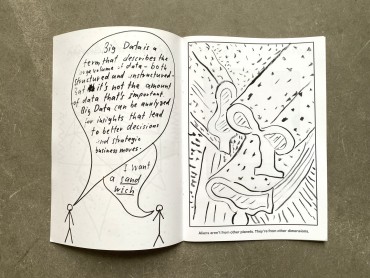 Big Data is a
term that describes the
large volume of data - both
structured and unstructured -
But it's not the amount
of data that's important.
Big Data can be analyzed
for insights that lead
to better decisions
and strategic
business moves.
I want
a sand
wich
Aliens aren't from other planets. They're from other dimensions.